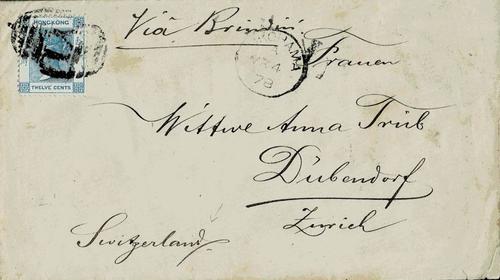 HONGKONG
TWELVE CENTS
Via Brindisi
YOKOHAMA
78
Frauen
Wittwe Anna Trüb
Dübendorf
Zurich
Switzerland